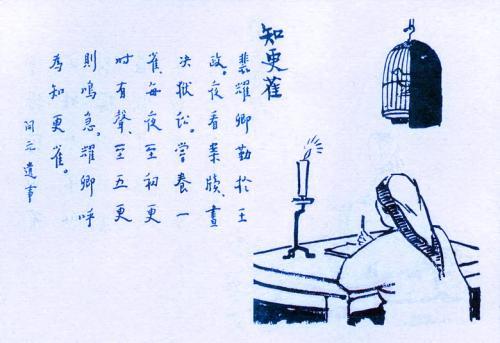 知更雀
裴耀卿勤於王
政。夜看案牘、晝
决獄訟。嘗養一
雀、每夜至初更
时有聲、至五更
則鳴急。耀卿呼
為知更雀。
開元遺事